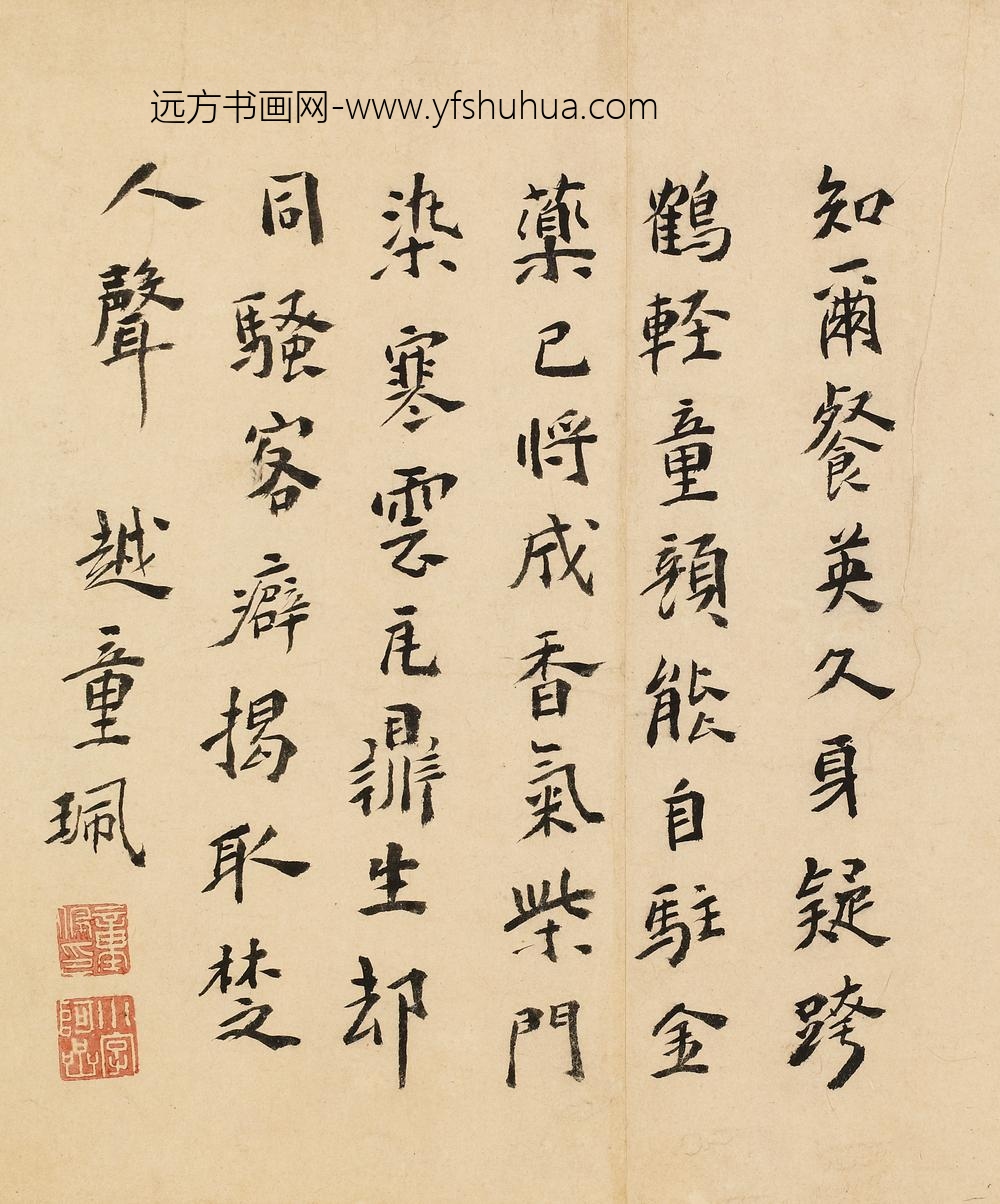 远方书画网-www.yfshuhua.com
知爾餐英久身疑跨
鶴輕童顏能自駐金
藥已將成香氣柴門
染寒雲瓦鼎生却
同騷客癖揭取楚
人聲 越童珮
童珮印
小字